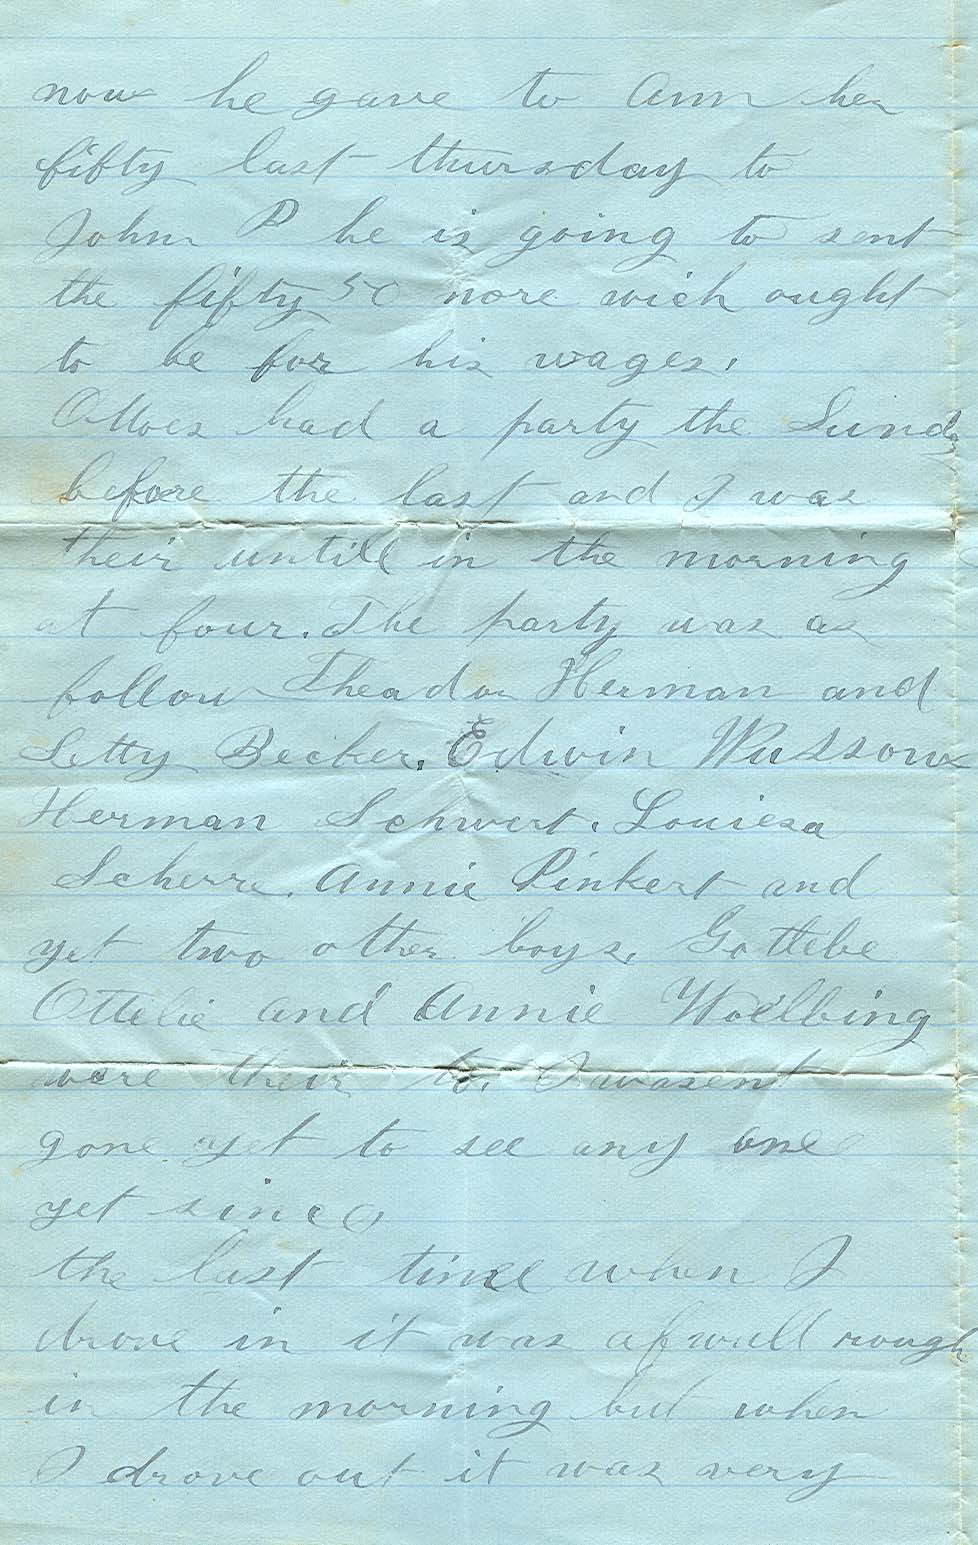 now he gave to Ann her
fifty last thursday to
John P he is going to sent
the fifty 50 more wich ought
to be for his wages.
Ottoes had a party the Sunday
before the last and I was
their untill in the morning
at four. The party was as
follow Theador Herman and
Letty Becker. Edwin Wussow
Herman Schwert. Louiesa
Scherre. Annie Pinkert and
yet two other boys. Gottlebe
Ottelie and Annie Woelbing
were their to. I wasent
gone yet to see any one
yet since
the last time when I
drove in it was afwull rough
in the morning but when
I drove out it was very